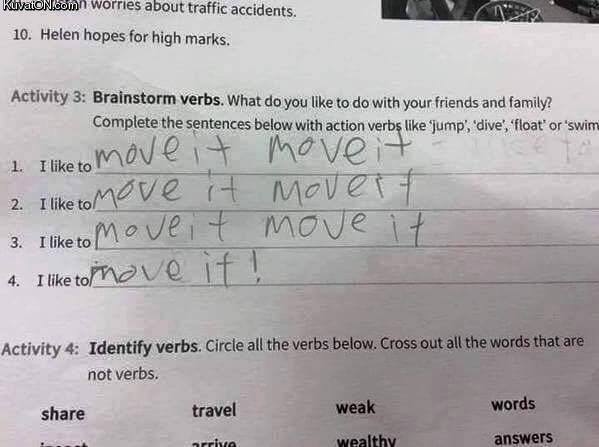 KuvatON.com worries about traffic accidents.
10. Helen hopes for high marks.
Activity 3: Brainstorm verbs. What do you like to do with your friends and family?
Complete the sentences below with action verbs like 'jump', 'dive', 'float' or 'swim
1. I like to move it move it
2. I like to move it move it
3. I like to move it move it
4. I like to move it!
Activity 4: Identify verbs. Circle all the verbs below. Cross out all the words that are
not verbs.
share travel weak words
arrive wealthy answers